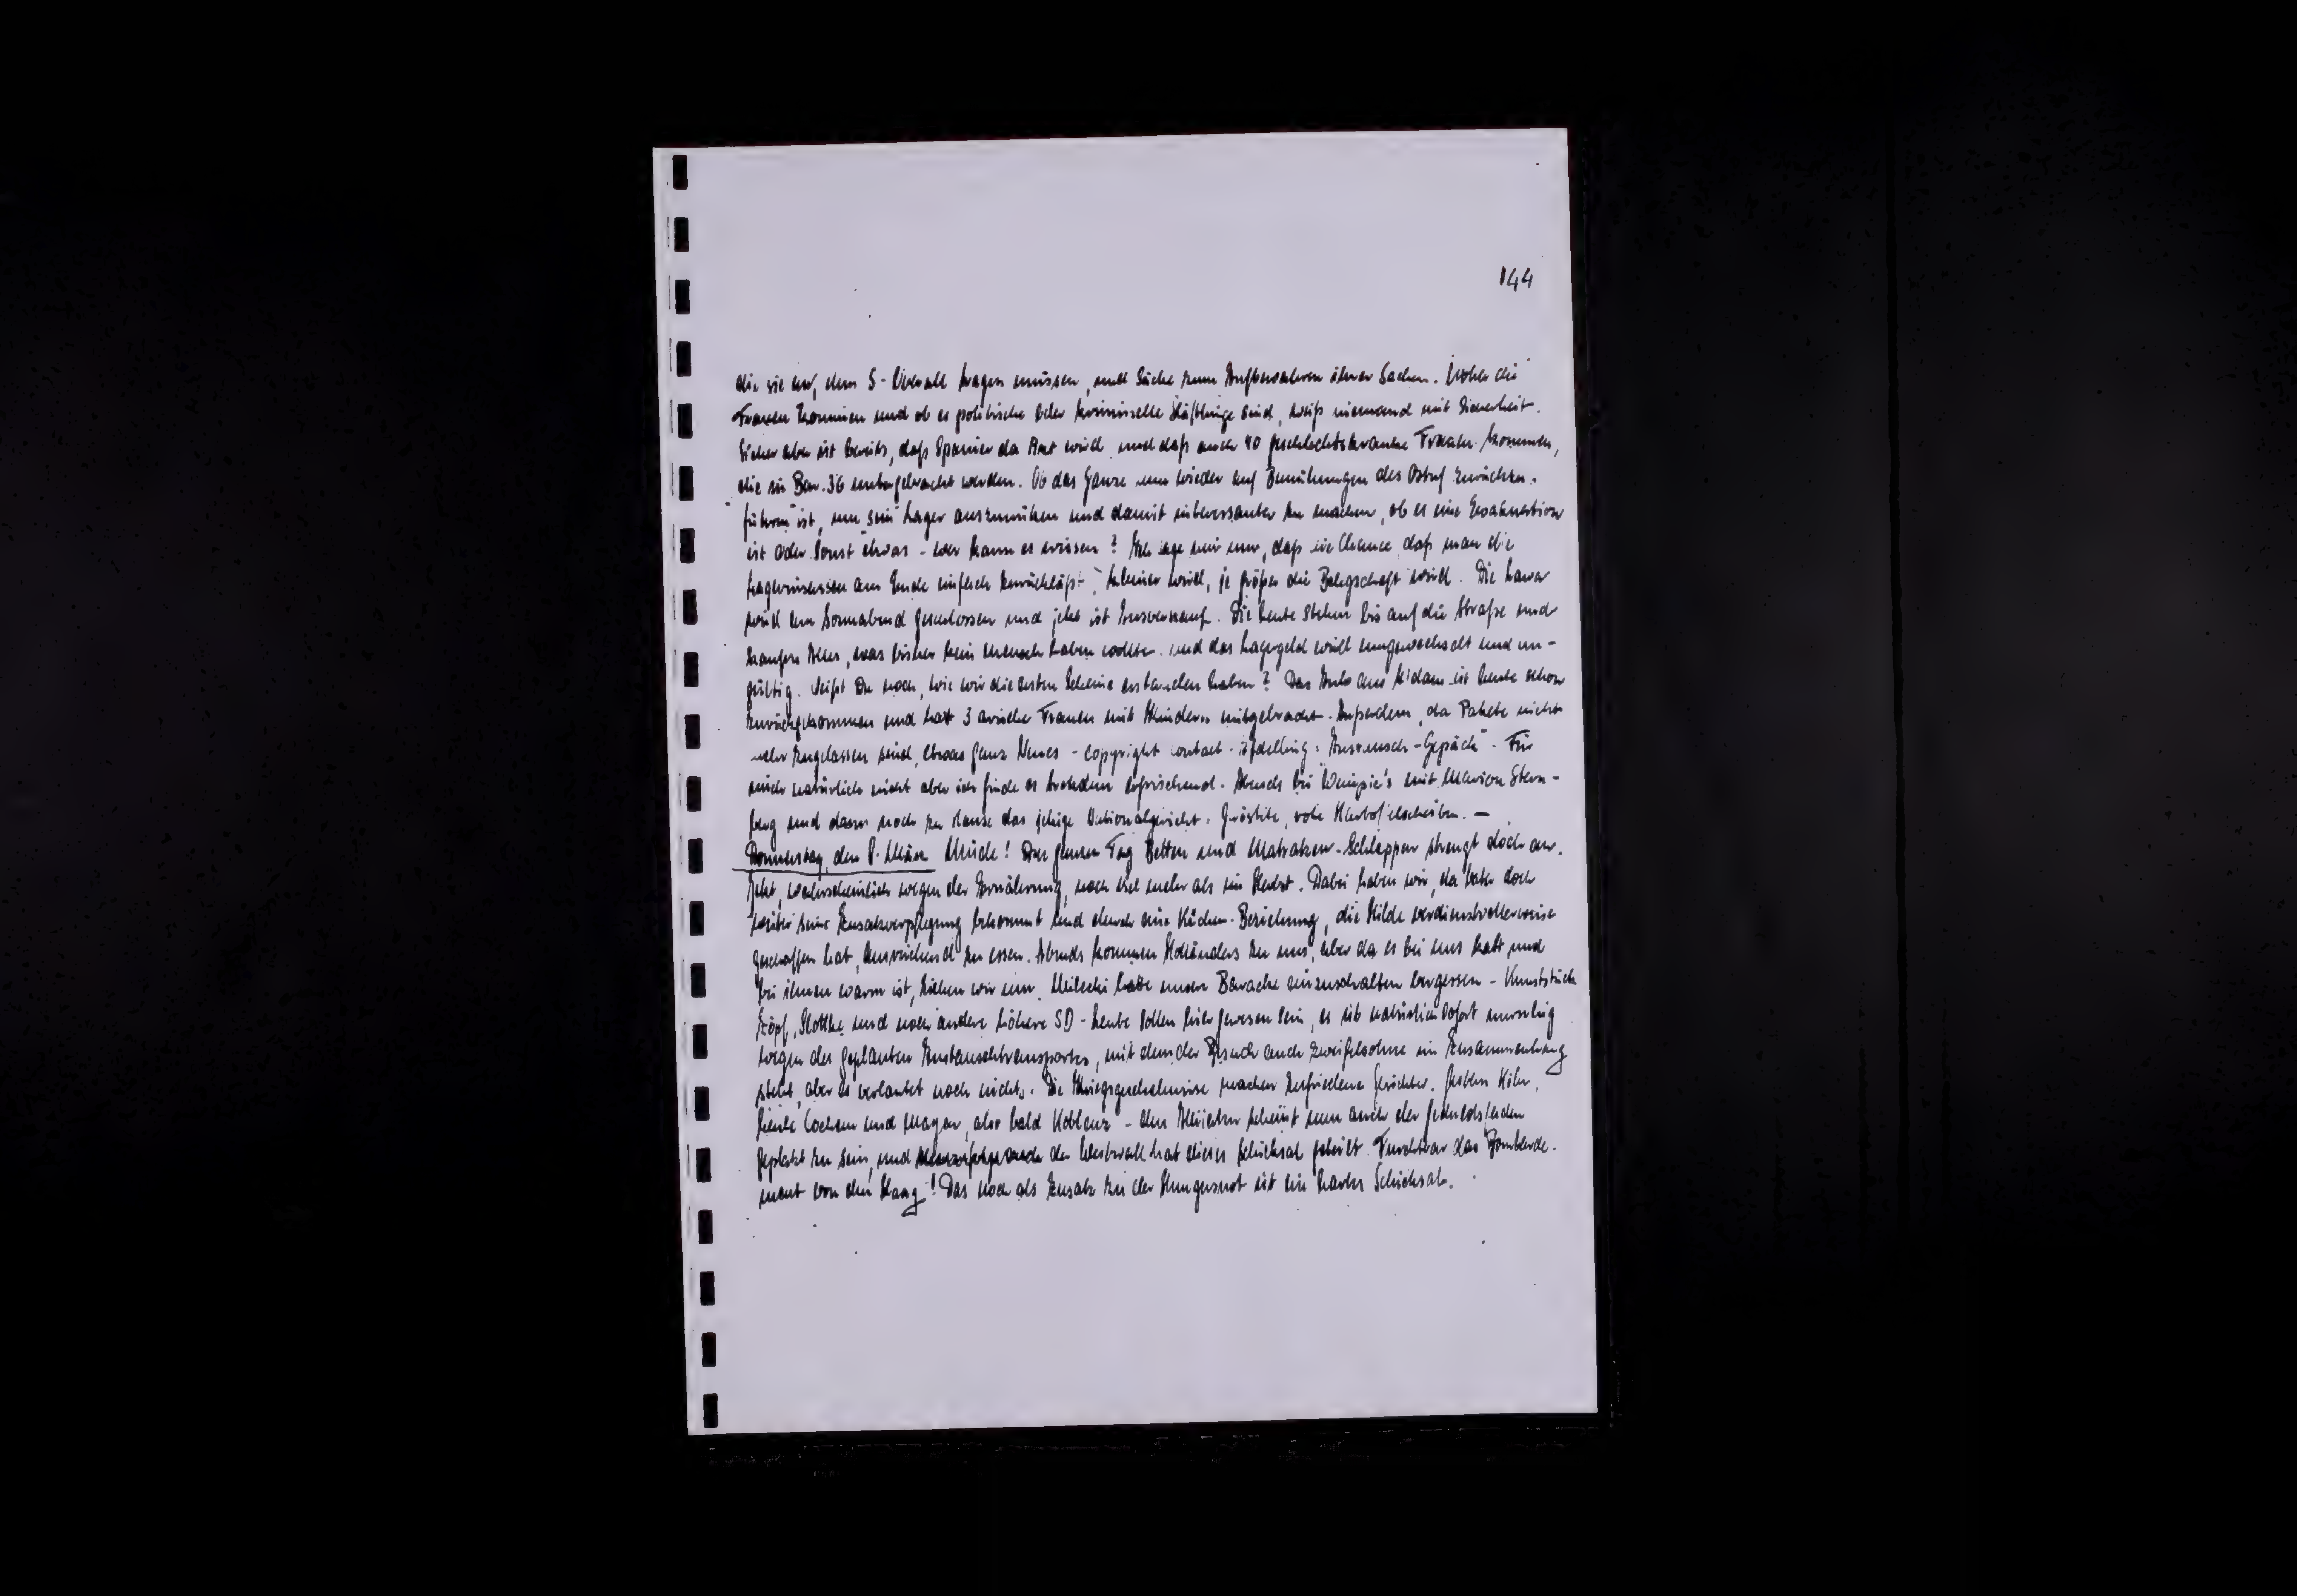 144
die sie auf dem S-Overall tragen müssen, und Säcke zum Aufbewahren ihrer Sachen. Woher die
Frauen kommen und ob es politische oder kriminelle Häftlinge sind, weiß niemand mit Sicherheit.
Sicher aber ist bereits, daß Spanier da Arzt wird und daß auch 40 geschlechtskranke Frauen kommen,
die in Bar. 36 untergebracht werden. Ob das Ganze nun wieder auf Bemühungen des Ostuf zurückzu-
führen ist, um "sein" Lager auszunützen und damit interessanter zu machen, ob es eine Evakuation
ist oder sonst etwas - wer kann es wissen? Ich sage mir nur, daß die Chance, daß man die
Lagerinsassen am Ende einfach zurückläßt, kleiner wird, je größer die Belegschaft wird. Die Lawa
wird am Sonnabend geschlossen und jetzt ist Ausverkauf. Die Leute stehen bis auf die Straße und
kaufen Alles, was bisher kein Mensch haben wollte. und das Lagergeld wird umgewechselt und un-
gültig. Weißt Du noch, wie wir die ersten Scheine erstanden haben? Das Auto aus A'dam ist heute schon
zurückgekommen und hat 3 arische Frauen mit Kindern mitgebracht. Außerdem, da Pakete nicht
mehr zugelassen sind, etwas ganz Neues - copyright contact-afdeeling: "Austausch-Gepäck". Für
mich natürlich nicht aber ich finde es trotzdem erfrischend. Abends bei Wempie's mit Marion Stern-
berg und dann noch zu Hause das jetzige Nationalgericht: Geröstete, rohe Kartoffelscheiben. -
Donnerstag, den 8. März Müde! Den ganzen Tag Betten und Matratzen-Schleppen strengt doch an.
Jetzt, wahrscheinlich wegen der Ernährung, noch viel mehr als im Herbst. Dabei haben wir, da Vater doch
weiter seine Zusatzverpflegung bekommt und durch eine Küchen-Beziehung, die Hilde verdienstvollerweise
geschaffen hat, ausreichend zu essen. Abends kommen Holländers zu uns, aber da es bei uns kalt und
bei ihnen warm ist, ziehen wir um. Mileski hatte unsere Baracke einzuschalten vergessen - Kunststück
Zöpf, Slottke und noch andere höhere SD-Leute sollen hier gewesen sein, es ist natürlich sofort unruhig
wegen des geplanten Austauschtransportes, mit dem der Besuch auch zweifelsohne im Zusammenhang
steht, aber es verlautet noch nichts. Die Kriegsgeschehnisse machen zufriedene Gesichter. Gestern Köln,
heute Cochem und Mayen, also bald Koblenz - den Alliierten scheint nun auch der Geduldsfaden
geplatzt zu sein, und der Westwall hat dieses Schicksal geteilt. Furchtbar das Bombarde-
ment von den Haag! Das noch als Zusatz zu der Hungersnot ist ein hartes Schicksal.